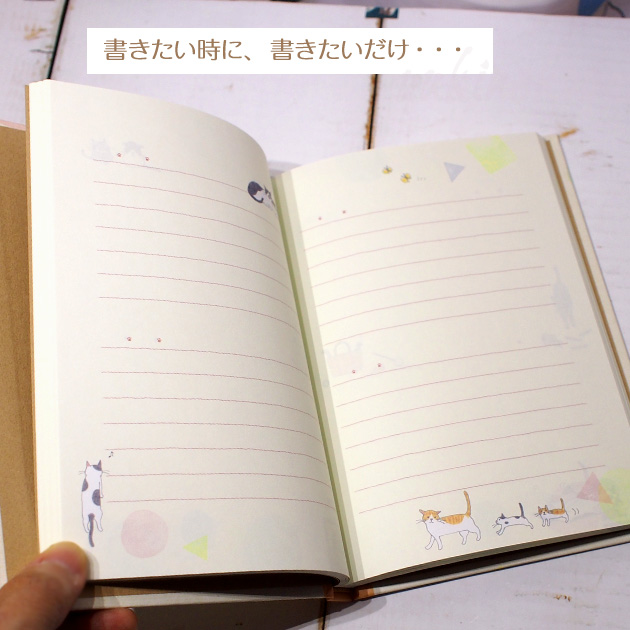 書きたい時に、書きたいだけ・・・